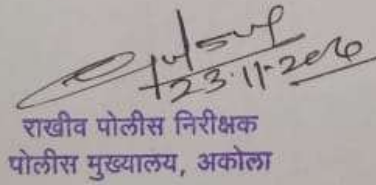 23.11.2020
राखीव पोलीस निरीक्षक
पोलीस मुख्यालय, अकोला